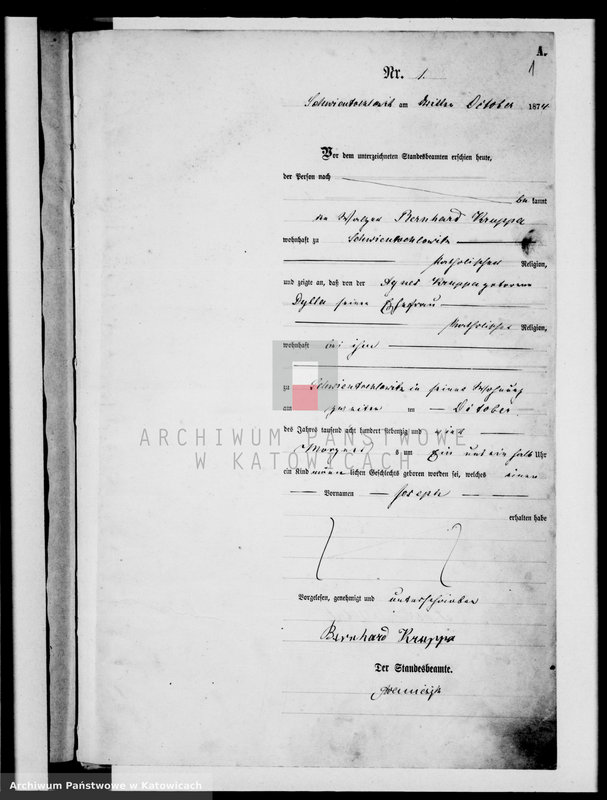 A.
1
Nr. 1.
Schwientochlowitz am dritten October 1874
Vor dem unterzeichneten Standesbeamten erschien heute,
der Person nach
be kannt
der Walzer Bernhard Kruppa
wohnhaft zu Schwientochlowitz
katholischer Religion,
und zeigte an, daß von der Agnes Kruppa geborene
Dylla seiner Ehefrau
katholischer Religion,
wohnhaft bei ihm
zu Schwientochlowitz in seiner Wohnung
am zweiten ten October
des Jahres tausend acht hundert siebenzig und vier
Morgens s um ein und ein halb Uhr
ein Kind männ lichen Geschlechts geboren worden sei, welches einen
Vornamen Joseph
erhalten habe
Vorgelesen, genehmigt und unterschrieben
Bernhard Kruppa
Der Standesbeamte.
ARCHIWUM PAŃSTWOWE
W KATOWICACH
Archiwum Państwowe w Katowicach